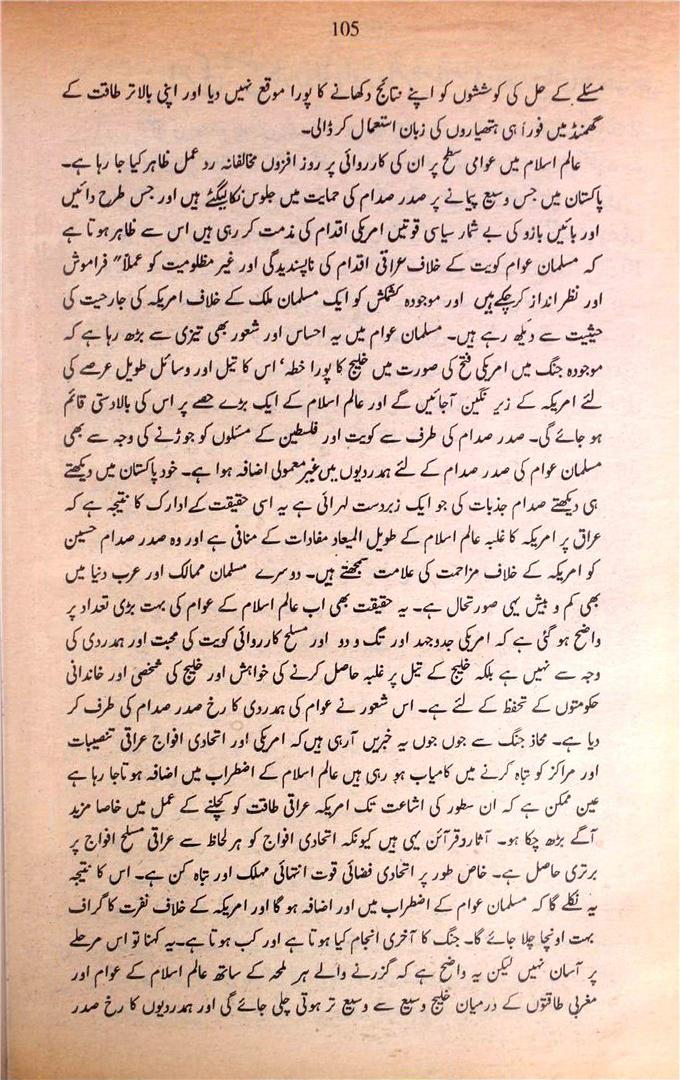 105
مسئلے کے حل کی کوششوں کو اپنے نتائج دکھانے کا پورا موقع نہیں دیا اور اپنی بالاتر طاقت کے
گھمنڈ میں فوراً ہی ہتھیاروں کی زبان استعمال کر ڈالی۔
عالم اسلام میں عوامی سطح پر ان کی کارروائی پر روز افزوں مخالفانہ رد عمل ظاہر کیا جا رہا ہے۔
پاکستان میں جس وسیع پیمانے پر صدر صدام کی حمایت میں جلوس نکالیگئے ہیں اور جس طرح دائیں
اور بائیں بازو کی بے شمار سیاسی قوتیں امریکی اقدام کی مذمت کر رہی ہیں اس سے ظاہر ہوتا ہے
کہ مسلمان عوام کویت کے خلاف عراقی اقدام کی ناپسندیدگی اور غیر مظلومیت کو عملاً" فراموش
اور نظر انداز کرچکے ہیں اور موجودہ کشمکش کو ایک مسلمان ملک کے خلاف امریکہ کی جارحیت کی
حیثیت سے دیکھ رہے ہیں۔ مسلمان عوام میں یہ احساس اور شعور بھی تیزی سے بڑھ رہا ہے کہ
موجودہ جنگ میں امریکی فتح کی صورت میں خلیج کا پورا خطہ' اس کا تیل اور وسائل طویل عرصے کی
لئے امریکہ کے زیر نگین آجائیں گے اور عالم اسلام کے ایک بڑے حصے پر اس کی بالادستی قائم
ہو جائے گی۔ صدر صدام کی طرف سے کویت اور فلسطین کے مسئلوں کو جوڑنے کی وجہ سے بھی
مسلمان عوام کی صدر صدام کے لئے ہمدردیوں میں غیر معمولی اضافہ ہوا ہے۔ خود پاکستان میں دیکھتے
ہی دیکھتے صدام جذبات کی جو ایک زبردست لہرائی ہے یہ اسی حقیقت کے ادارک کا نتیجہ ہے کہ
عراق پر امریکہ کا غلبہ عالم اسلام کے طویل المیعاد مفادات کے منافی ہے اور وہ صدر صدام حسین
کو امریکہ کے خلاف مزاحمت کی علامت سمجھتے ہیں۔ دوسرے مسلمان ممالک اور عرب دنیا میں
بھی کم و بیش یہی صورتحال ہے۔ یہ حقیقت بھی اب عالم اسلام کے عوام کی بہت بڑی تعداد پر
واضح ہو گئی ہے کہ امریکی جدوجہد اور تگ و دو اور مسلح کارروائی کویت کی محبت اور ہمدردی کی
وجہ سے نہیں ہے بلکہ خلیج کے تیل پر غلبہ حاصل کرنے کی خواہش اور خلیج کی شخصی اور خاندانی
حکومتوں کے تحفظ کے لئے ہے۔ اس شعور نے عوام کی ہمدردی کا رخ صدر صدام کی طرف کر
دیا ہے۔ محاذ جنگ سے جوں جوں یہ خبریں آرہی ہیں کہ امریکی اور اتحادی افواج عراقی تنصیبات
اور مراکز کو تباہ کرنے میں کامیاب ہو رہی ہیں عالم اسلام کے اضطراب میں اضافہ ہوتا جا رہا ہے
عین ممکن ہے کہ ان سطور کی اشاعت تک امریکہ عراقی طاقت کو کچلنے کے عمل میں خاصا مزید
آگے بڑھ چکا ہو۔ آثار و قرآئن یہی ہیں کیونکہ اتحادی افواج کو ہر لحاظ سے عراقی مسلح افواج پر
برتری حاصل ہے۔ خاص طور پر اتحادی فضائی قوت انتہائی مہلک اور تباہ کن ہے۔ اس کا نتیجہ
یہ نکلے گا کہ مسلمان عوام کے اضطراب میں اور اضافہ ہو گا اور امریکہ کے خلاف نفرت کا گراف
بہت اونچا چلا جائے گا۔ جنگ کا آخری انجام کیا ہوتا ہے اور کب ہوتا ہے۔ یہ کہنا تو اس مرحلے
پر آسان نہیں لیکن یہ واضح ہے کہ گزرنے والے ہر لمحہ کے ساتھ عالم اسلام کے عوام اور
مغربی طاقتوں کے درمیان خلیج وسیع سے وسیع تر ہوتی چلی جائے گی اور ہمدردیوں کا رخ صدر